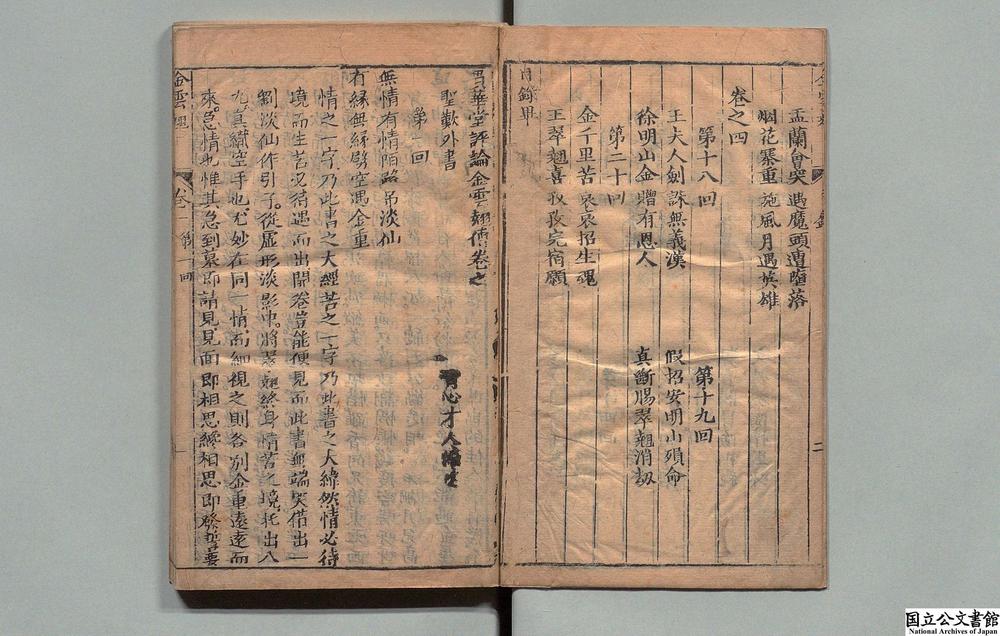 盂蘭會突遇魔頭遭墮落
烟花寨重施風月遇英雄
卷之四
第十八回
王夫人劍誅無義漢
徐明山金贈有恩人
第十九回
假招安明山殞命
真斷腸翠翹消劫
第二十回
金千里苦哀哀招生魂
王翠翹喜孜孜完宿願
目錄畢
二
貫華堂評論金雲翹傳卷之
聖歎外書
青心才人編次
第一回
無情有情陌路吊淡仙
有緣無緣劈空遇金重
情之一字乃此書之大經苦之一字乃此書之大緯然情必待
境而生苦必待遇而出開卷豈能便見而此書無端突借出一
劉淡仙作引子從虛形淡影中將翠翹終身情苦之境托出八
九真織空手也尤妙在同一情而細視之則各別金重遠遠而
來急情也惟其急到墓即請見見面即相思纔相思即發誓要
金雲翹 卷一 第一回
国立公文書館
National Archives of Japan